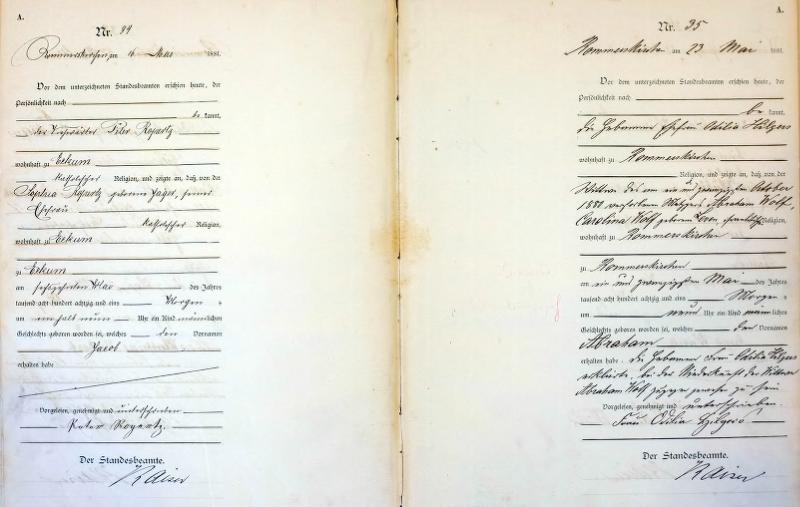 A.
Nr. 34
Rommerskirchen am 16 Mai 1881.
Vor dem unterzeichneten Standesbeamten erschien heute, der
Persönlichkeit nach
be kannt,
der Peter Ropertz
wohnhaft zu Eckum
katholischer Religion, und zeigte an, daß von der
Sophia Ropertz geborene Jäger, seiner
Ehefrau
katholischer Religion,
wohnhaft zu Eckum
zu Eckum
am Mai des Jahres
tausend acht hundert achtzig und eins Morgens
um neun Uhr ein Kind männlichen
Geschlechts geboren worden sei, welches den Vornamen
Jacob
erhalten habe
Vorgelesen, genehmigt und unterschrieben
Peter Ropertz
Der Standesbeamte.
Kaiser
A.
Nr. 35
Rommerskirchen am 23 Mai 1881.
Vor dem unterzeichneten Standesbeamten erschien heute, der
Persönlichkeit nach
be kannt,
die Hebamme Ehefrau Odilia Hilgers
wohnhaft zu Rommerskirchen
Religion, und zeigte an, daß von der
Wittwe des am ein und zwanzigsten October
1880 verstorbenen Metzgers Abraham Wolf,
Carolina Wolf geborene israelitischer Religion,
wohnhaft zu Rommerskirchen
zu Rommerskirchen
am ein und zwanzigsten Mai des Jahres
tausend acht hundert achtzig und eins Morgens
um neun Uhr ein Kind männlichen
Geschlechts geboren worden sei, welches den Vornamen
Abraham
erhalten habe. Die Hebamme Frau Odilia Hilgers
erklärte, bei der Niederkunft der Wittwe
Abraham Wolf zugegen gewesen zu sein
Vorgelesen, genehmigt und unterschrieben.
Frau Odilia Hilgers
Der Standesbeamte.
Kaiser